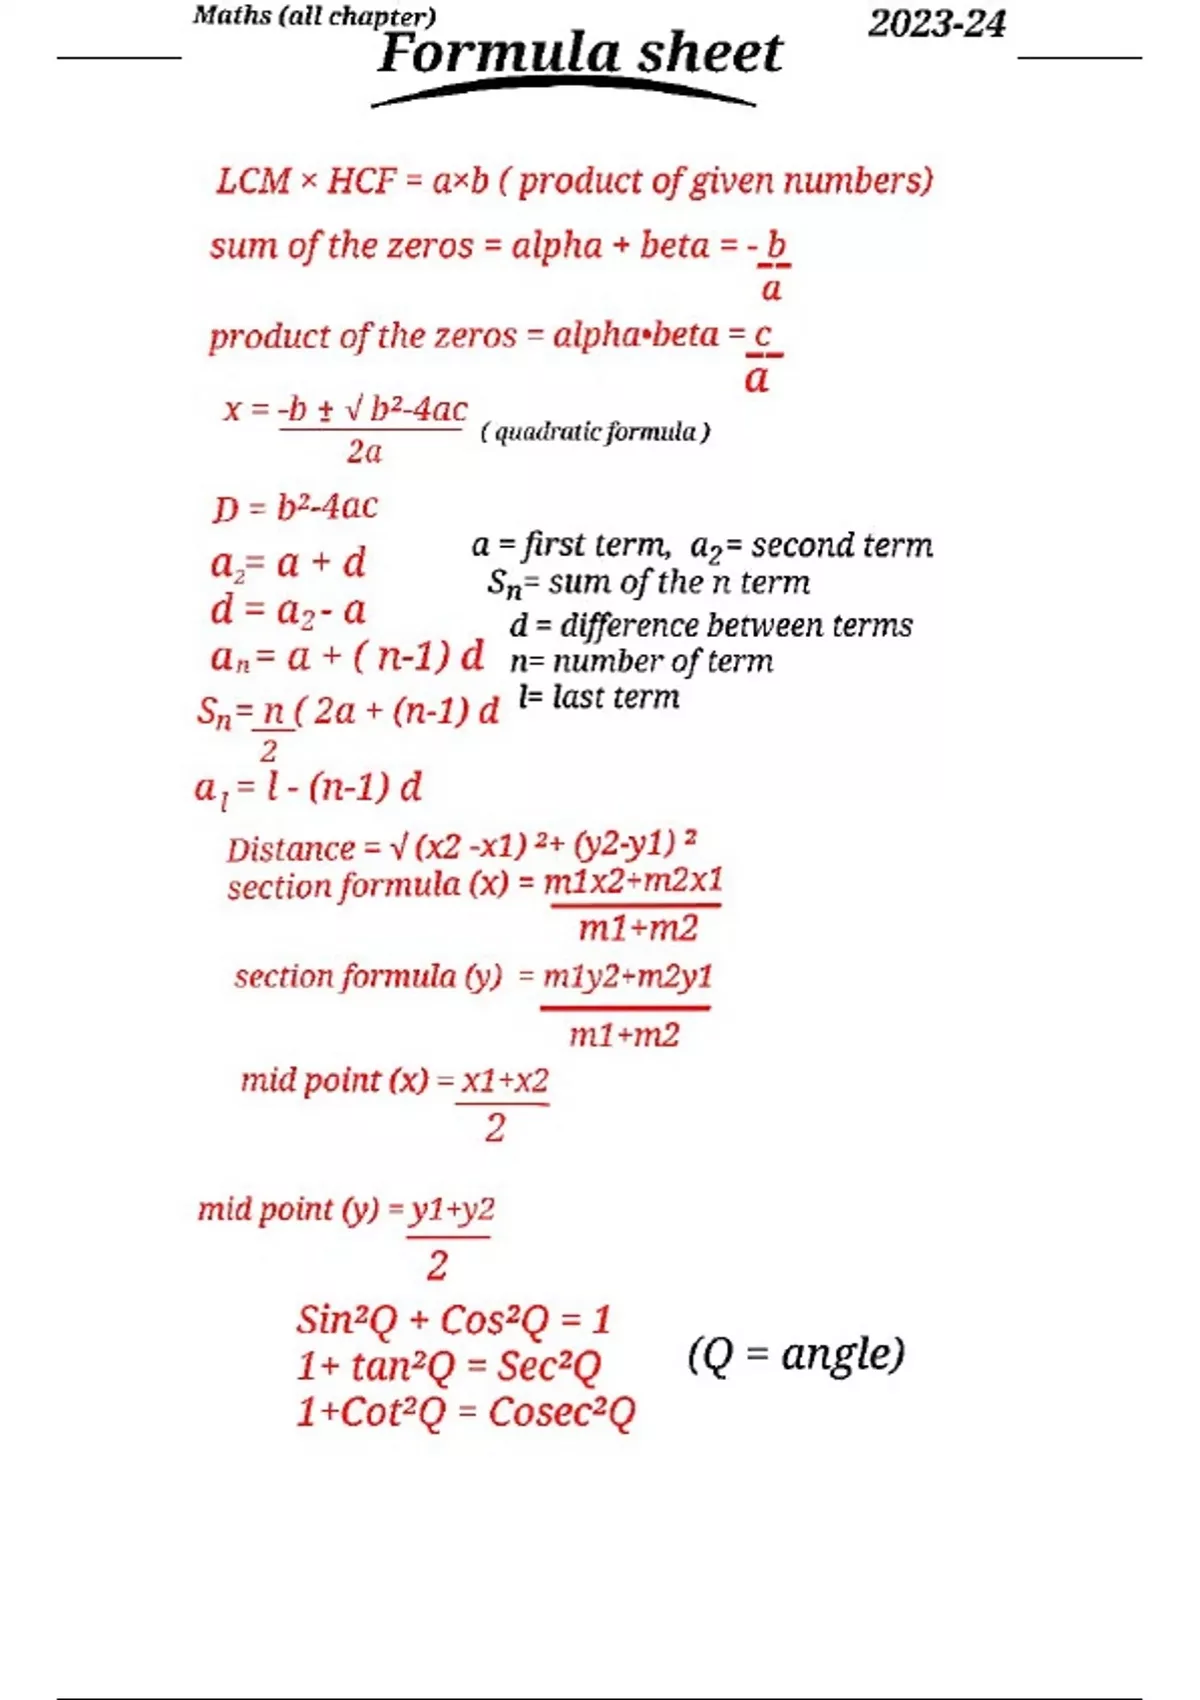 Maths (all chapter)
2023-24
Formula sheet
LCM × HCF = a×b ( product of given numbers)
sum of the zeros = alpha + beta = - b
a
product of the zeros = alpha•beta = c
a
x = -b ± √ b²-4ac
2a
( quadratic formula )
D = b²-4ac
a₂= a + d
d = a₂- a
aₙ= a + ( n-1) d
Sₙ= n ( 2a + (n-1) d
2
aₗ = l - (n-1) d
a = first term, a₂= second term
Sₙ= sum of the n term
d = difference between terms
n= number of term
l= last term
Distance = √ (x2 -x1) ²+ (y2-y1) ²
section formula (x) = m1x2+m2x1
m1+m2
section formula (y) = m1y2+m2y1
m1+m2
mid point (x) = x1+x2
2
mid point (y) = y1+y2
2
Sin²Q + Cos²Q = 1
1+ tan²Q = Sec²Q
1+Cot²Q = Cosec²Q
(Q = angle)